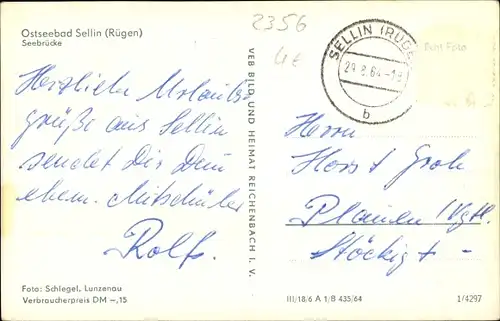 Ostseebad Sellin (Rügen)
Seebrücke
2356
4€
SELLIN (RÜG
29.8.64-18
b
Herzliche Urlaubs-
grüße aus Sellin
sendet Dir Dein
ehem. Mitschüler
Rolf.
VEB BILD UND HEIMAT REICHENBACH I. V.
Herrn
Horst Groh
Plauen/Vgtl.
Stöckigt
Foto: Schlegel, Lunzenau
Verbraucherpreis DM –,15
III/18/6 A 1/B 435/64
1/4297